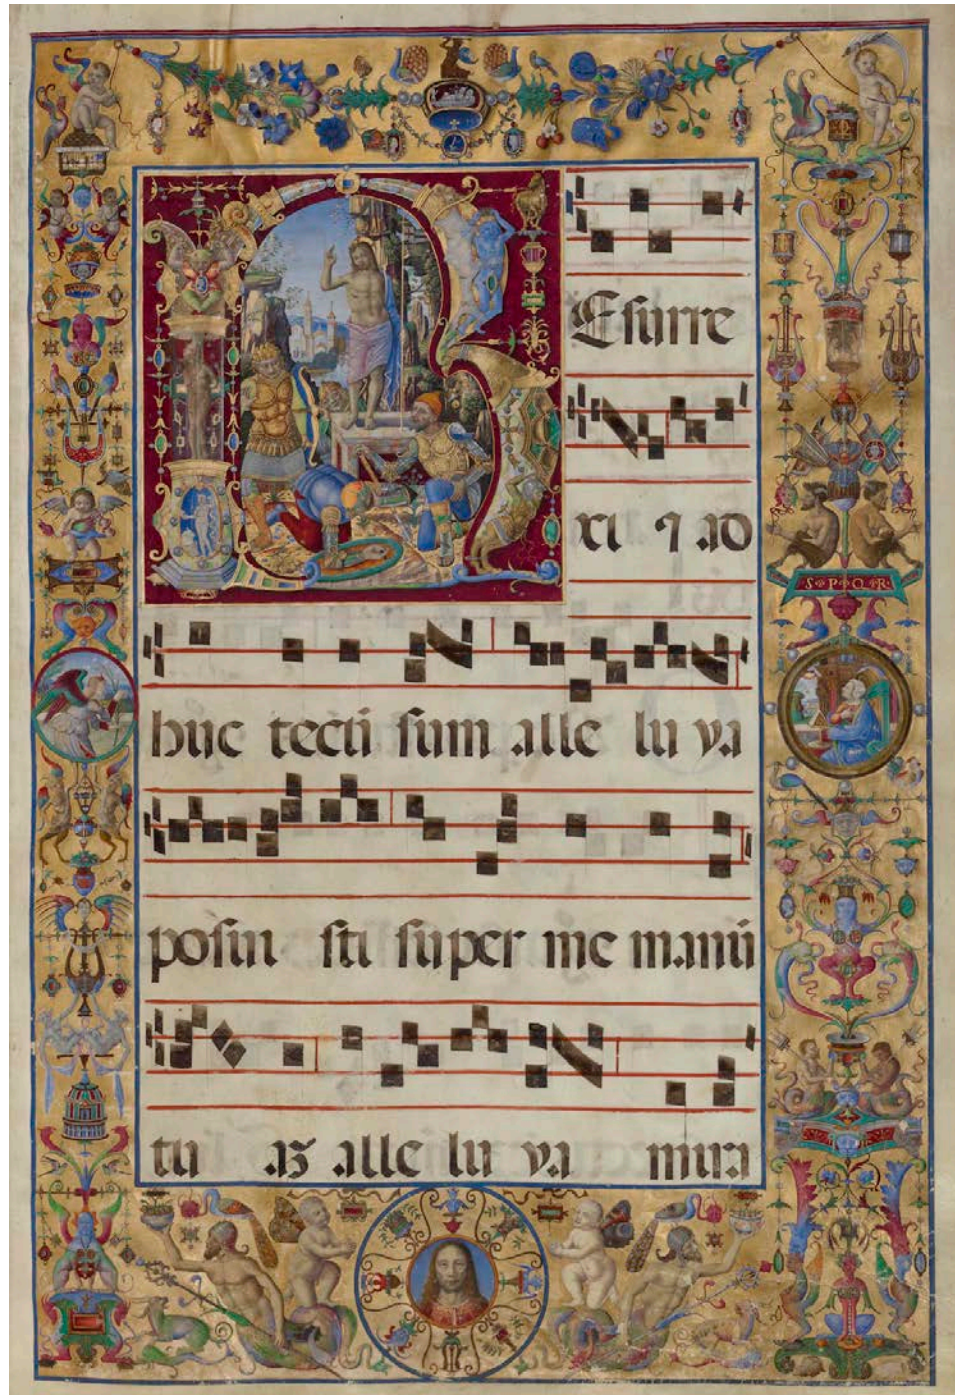 REsurre
xi ⁊ ad
S·P·Q·R·
huc tecu sum alle lu ya
posui sti super me manū
tu aꝫ alle lu ya mira